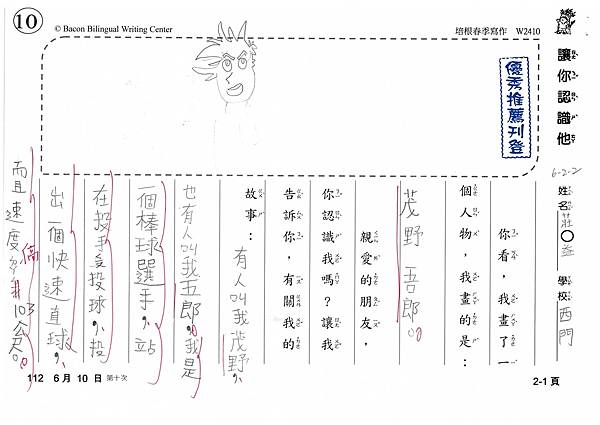 10
© Bacon Bilingual Writing Center
培根春季寫作 W2410
優秀推薦刊登
讓你認識他
6-2-2
姓名 莊〇益 學校 西門
你看，我畫了一
個人物，我畫的是：
茂野 吾郎。
親愛的朋友，
你認識我嗎？讓我
告訴你，有關我的
故事：
有人叫我茂野，
也有人叫我五郎。我是
一個棒球選手，站
在投手丘投球，投
出一個快速直球，
而且速度 103公
112 6月 10 日 第十次
2-1 頁